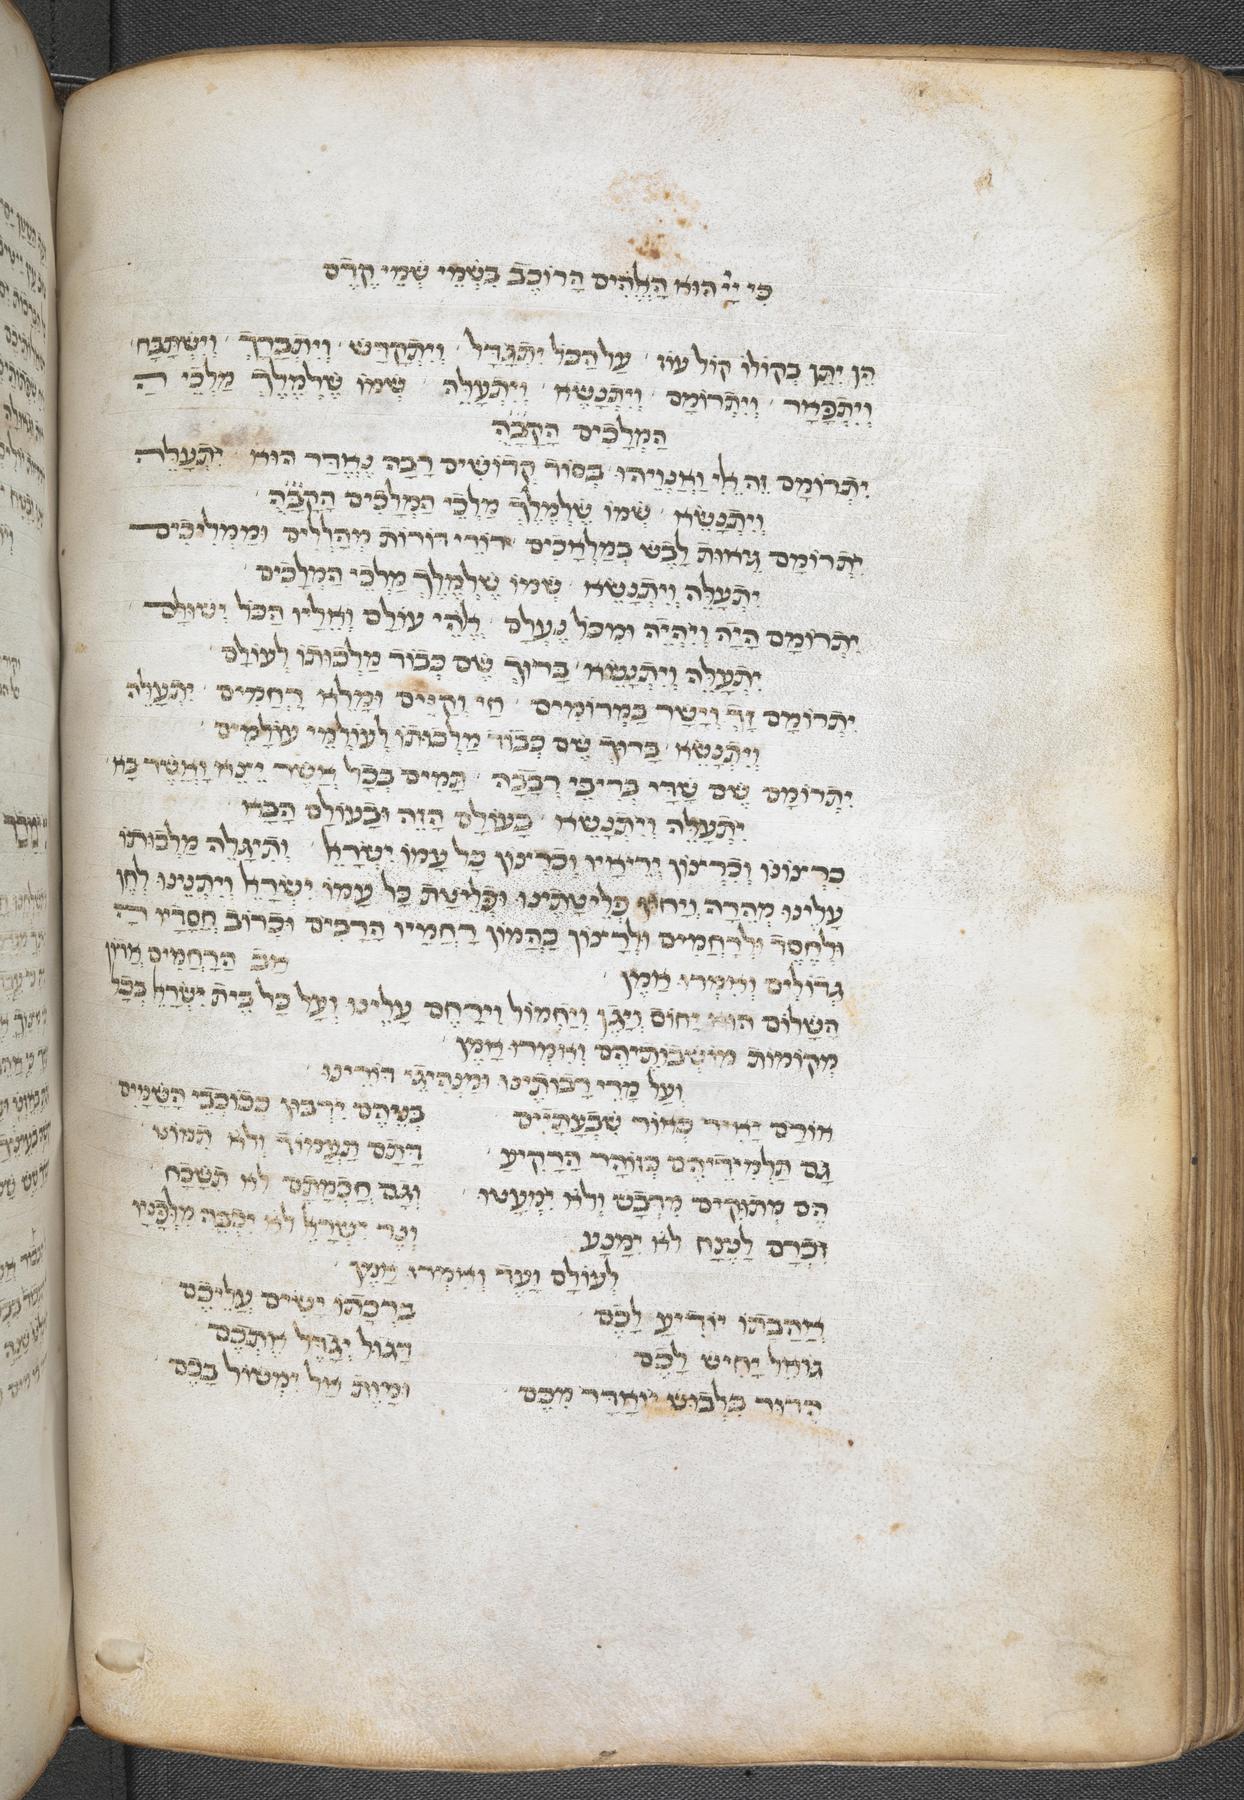 כִּי יְיָ הוּא הָאֱלֹהִים הָרוֹכֵב בִּשְׁמֵי שְׁמֵי קֶדֶם
הֵן יִתֵּן בְּקוֹלוֹ קוֹל עוֹז עַל הַכּוֹל יִתְגַּדָּל וְיִתְקַדַּשׁ וְיִתְבָּרַךְ וְיִשְׁתַּבַּח
וְיִתְפָּאָר וְיִתְרוֹמָם וְיִתְנַשֵּׂא וְיִתְעַלֶּה שְׁמוֹ שֶׁלְמֶלֶךְ מַלְכֵי ה
הַמְלָכִים הַקָּבָּ״ה
יִתְרוֹמָם זֶה אֵלִי וְאַנְוֵיהוּ בְּסוֹד קְדוֹשִׁים רַבָּה נֶאְדַּר הוּא יִתְעַלֶּה
וְיִתְנַשֵּׂא שְׁמוֹ שֶׁלְמֶלֶךְ מַלְכֵי הַמְלָכִים הַקָּבָּ״ה
יִתְרוֹמָם גֵּיאוּת לָבֵשׁ בְּמַלְאָכִים דּוֹרֵי דוֹרוֹת מְהַלְלִים וּמַמְלִיכִים
יִתְעַלֶּה וְיִתְנַשֵּׂא שְׁמוֹ שֶׁלְמֶלֶךְ מַלְכֵי הַמְלָכִים
יִתְרוֹמָם הָיָה וְיִהְיֶה וּמִכּוֹל נֶעְלָם אֱלֹהֵי עוֹלָם וְאֵלָיו הַכּוֹל יְשׁוּלָּם
יִתְעַלֶּה וְיִתְנַשֵּׂא בָּרוּךְ שֵׁם כְּבוֹד מַלְכוּתוֹ לְעוֹלָם
יִתְרוֹמָם זָךְ וְיָשָׁר בַּמְּרוֹמִים חַי וְקַיָּים וּמָלֵא רַחֲמִים יִתְעַלֶּה
וְיִתְנַשֵּׂא בָּרוּךְ שֵׁם כְּבוֹד מַלְכוּתוֹ לְעוֹלְמֵי עוֹלָמִים
יִתְרוֹמָם שֵׁם שַׁדַּי בְּרִיבֵי רְבָבָה תָּמִים בְּכָל אֲשֶׁר יֵצֵא וַאֲשֶׁר בָּא
יִתְעַלֶּה וְיִתְנַשֵּׂא בָּעוֹלָם הַזֶּה וּבָעוֹלָם הַבָּא
כִּרְצוֹנוֹ וְכִרְצוֹן יְרֵיאָיו וְכִרְצוֹן כָּל עַמּוֹ יִשְׂרָאֵל וְתִיגָּלֶה מַלְכוּתוֹ
עָלֵינוּ מְהֵרָה וְיָחוֹן פְּלֵיטָתֵינוּ וּפְלֵיטַת כָּל עַמּוֹ יִשְׂרָאֵל וְיִתְּנֵינוּ לְחֵן
וּלְחֶסֶד וּלְרַחֲמִים וּלְרָצוֹן בַּהֲמוֹן רַחֲמָיו הָרַבִּים וּבְרוֹב חֲסָדָיו ה
גְּדוֹלִים וְאִמְרוּ אָמֵן אַב הָרַחֲמִים אֲדוֹן
הַשָּׁלוֹם הוּא יָחוֹס וְיָגֵן וְיַחְמוֹל וִירַחֵם עָלֵינוּ וְעַל כָּל בֵּית יִשְׂרָאֵל בְּכָל
מְקוֹמוֹת מוֹשְׁבוֹתֵיהֶם וְאִמְרוּ אָמֵן
וְעַל מָרֵי רָבוֹתֵינוּ וּמַנְהִיגֵי דוֹרֵינוּ
אוֹרָם יָאִיר כְּאוֹר שִׁבְעָתָיִים בְּעֵיהֶם יִרְבּוּן כְּכוֹכְבֵי הַשָּׁמָיִם
גַּם תַּלְמִידֵיהֶם כְּזוֹהַר הָרָקִיעַ דָּתָם תַּעֲמוֹד וְלֹא תִמּוֹט
הֵם מְתוּקִים מִדְּבָשׁ וְלֹא יִמְעָטוּ וְגַם חָכְמָתָם לֹא תִשָּׁכַח
זִכְרָם לָנֶצַח לֹא יִמָּנַע וְנֵר יִשְׂרָאֵל לֹא יִכְבֶּה מִלְּפָנָיו
לְעוֹלָם וָעֶד וְאִמְרוּ אָמֵן
אַהֲבָתוֹ יוֹדִיעַ לָכֶם בִּרְכָתוֹ יָשִׂים עֲלֵיכֶם
גּוֹאֵל יָחִישׁ לָכֶם דָּגוּל יְגַדֵּל אֶתְכֶם
הָדוּר בִּלְבוּשׁ יוֹאֲדָר מִכֶּם וּמָוֶת אַל יִמְשׁוֹל בָּכֶם